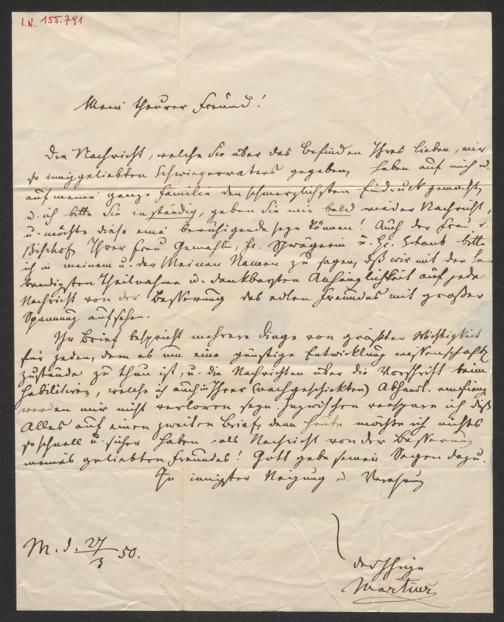 I.N. 155.791
Mein theurer Freund!
Die Nachricht, welche Sie über das Befinden Ihres lieben, mir
so inniggeliebten Schwiegervaters gegeben, haben auf mich u.
auf meine ganze Familie den schmerzlichsten Eindruck gemacht,
u. ich bitte Sie inständig, geben Sie mir bald wieder Nachricht,
u. möchte diese eine beruhigende seyn können! Auch der Frau v.
Ihrer Frau Gemahlin, Fr. Schwägerin u. bitte
ich in meinem u. der Meinen Namen zu sagen, daß wir mit der
Theilnahme u. dankbarsten Anhänglichkeit auf jede
Nachricht von der Besserung des edlen Freundes mit großer
Spannung aufsehen.
Ihr Brief bespricht mehrere Dinge von größter Wichtigkeit
für jeden, dem es um eine günstige Entwicklung wissenschaftl.
Zustände zu thun ist, u. die Nachrichten über die Vorschrift beim
Habilitiren, welche ich auch in Ihrer (nachgeschickten) Abhandl. empfing
werden mir nicht verloren seyn. Inzwischen verspare ich dieß
Alles auf einen zweiten Brief, denn heute möchte ich nichts
so schnell u. sicher haben als Nachricht von der Besserung
meines geliebten Freundes! Gott gebe seinen Segen dazu.
In innigster Neigung u. Verehrung
M. d. 27/3 50.
der Ihrige
Martius